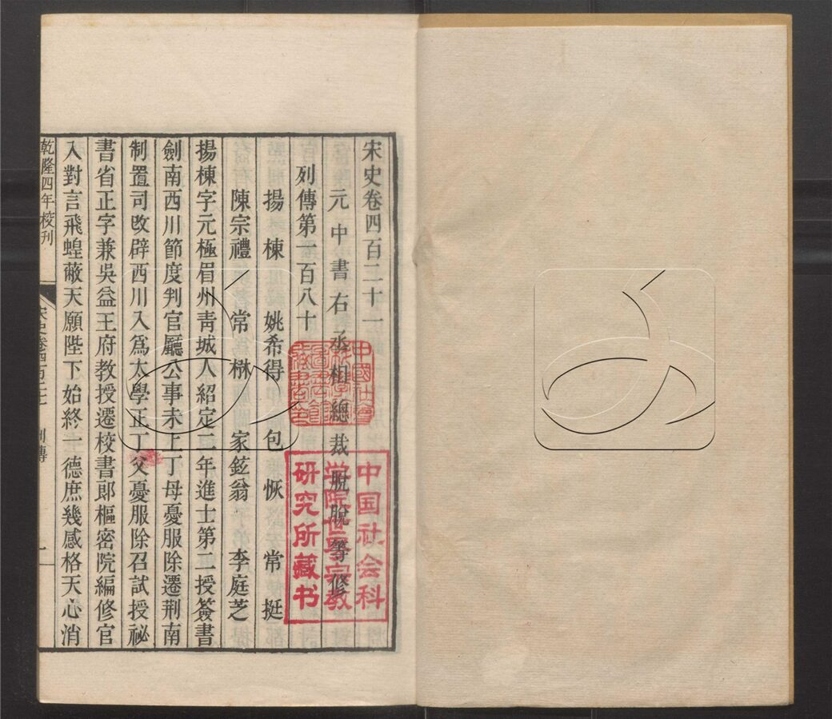 宋史卷四百二十一
元中書右丞相總裁脫脫等修
列傳第一百八十
揚棟 姚希得 包恢 常挺
陳宗禮 常楙 家鉉翁 李庭芝
揚棟字元極眉州青城人紹定二年進士第二授簽書
劍南西川節度判官廳公事未上丁母憂服除遷荆南
制置司改辟西川入爲太學正丁父憂服除召試授祕
書省正字兼吳益王府教授遷校書郎樞密院編修官
入對言飛蝗蔽天願陛下始終一德庶幾感格天心消
乾隆四年校刊
宋史卷四百二十一 列傳 一
中国社会科
学院世界宗教
研究所藏书